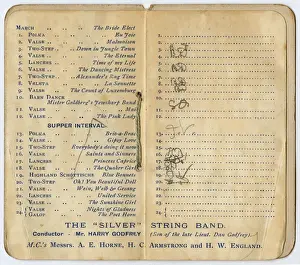 MARCH ... The Bride Elect
1. POLKA ... En Joie
2. VALSE
3. TWO-STEP ... Down in Jungle Town
4. VALSE ... The Eternal
5. LANCERS ... Time of my Life
6. VALSE ... The Dancing Mistress
7. TWO-STEP ... Alexander's Rag Time
8. VELETA ... La Sonnette
9. VALSE ... The Count of Luxemburg
10. BARN DANCE
Mister Goldberg's
11. VALSE
12. VALSE ... The Pink Lady
SUPPER INTERVAL.
13. POLKA ... Bric-a-Brac
14. VALSE ... Gipsy Love
15. TWO-STEP ... Everybody's doing it now
16. VALSE ... Saints and Sinners
17. LANCERS ... Princess Caprice
18. VALSE ... The Quaker Girl
19. HIGHLAND SCHOTTISCHE ... Blue Bonnets
20. TWO-STEP ... Oh! You Beautiful Doll
21. VALSE ... Wein, Weib und Gesang
22. LANCERS ... United Service
23. VALSE ... The Sunshine Girl
24. VALSE ... Nights of Gladness
GALOP ... The Post Horn
1.
2.
3.
4.
5.
6.
7.
8.
9.
10.
11.
12.
13.
14.
15.
16.
17.
18.
19.
20.
21.
22.
23.
24.
THE "SILVER" STRING BAND.
Conductor - Mr. HARRY GODFREY (Son of the late Lieut. Dan Godfrey)
M.C.'s Messrs. A. E. HORNE, H. C. ARMSTRONG and H. W. ENGLAND.